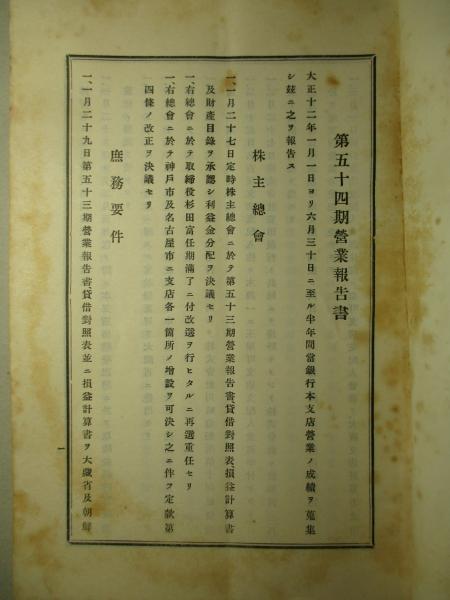 第五十四期營業報告書
大正十二年一月一日ヨリ六月三十日ニ至ル半年間當銀行本支店營業ノ成績ヲ蒐集
シ玆ニ之ヲ報告ス
株主總會
一、一月二十七日定時株主總會ニ於テ第五十三期營業報告書、貸借對照表、損益計算書
及財產目錄ヲ承認シ利益金分配ヲ決議セリ
一、右總會ニ於テ取締役杉田富任期滿了ニ付改選ヲ行ヒタルニ再選重任セリ
一、右總會ニ於テ神戶市及名古屋市ニ支店各一箇所ノ增設ヲ可決シ之ニ伴フ定款第
四條ノ改正ヲ決議セリ
庶務要件
一、一月二十九日第五十三期營業報告書貸借對照表並ニ損益計算書ヲ大藏省及朝鮮
一